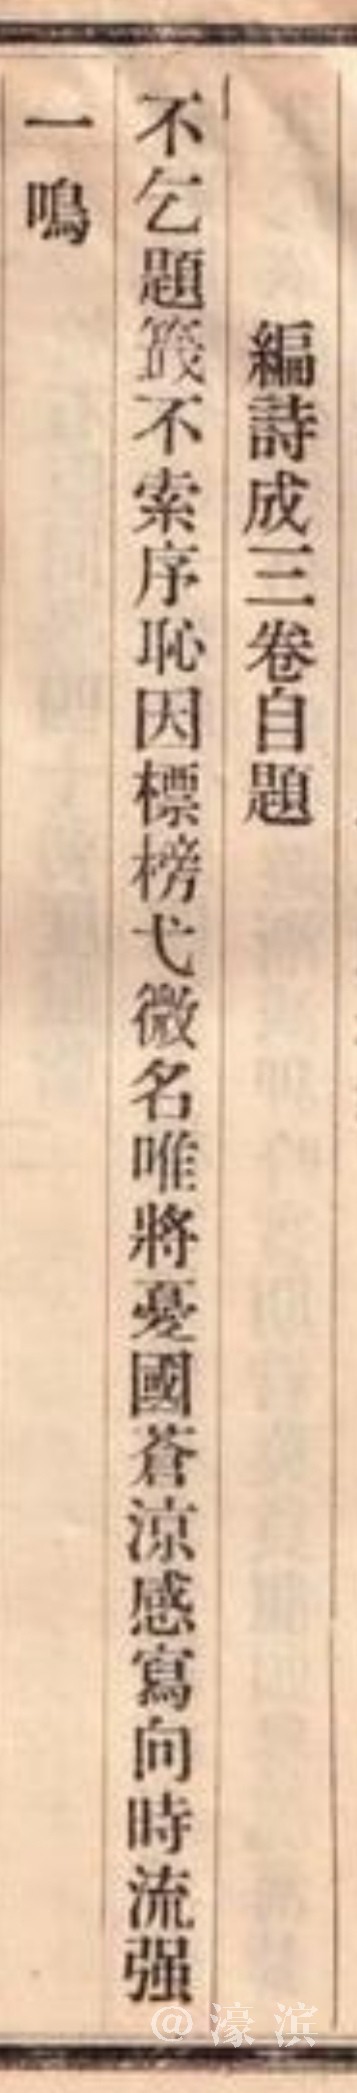 編詩成三卷自題
不乞題籤不索序恥因標榜弋微名唯將憂國蒼涼感寫向時流强
一鳴
@濠滨